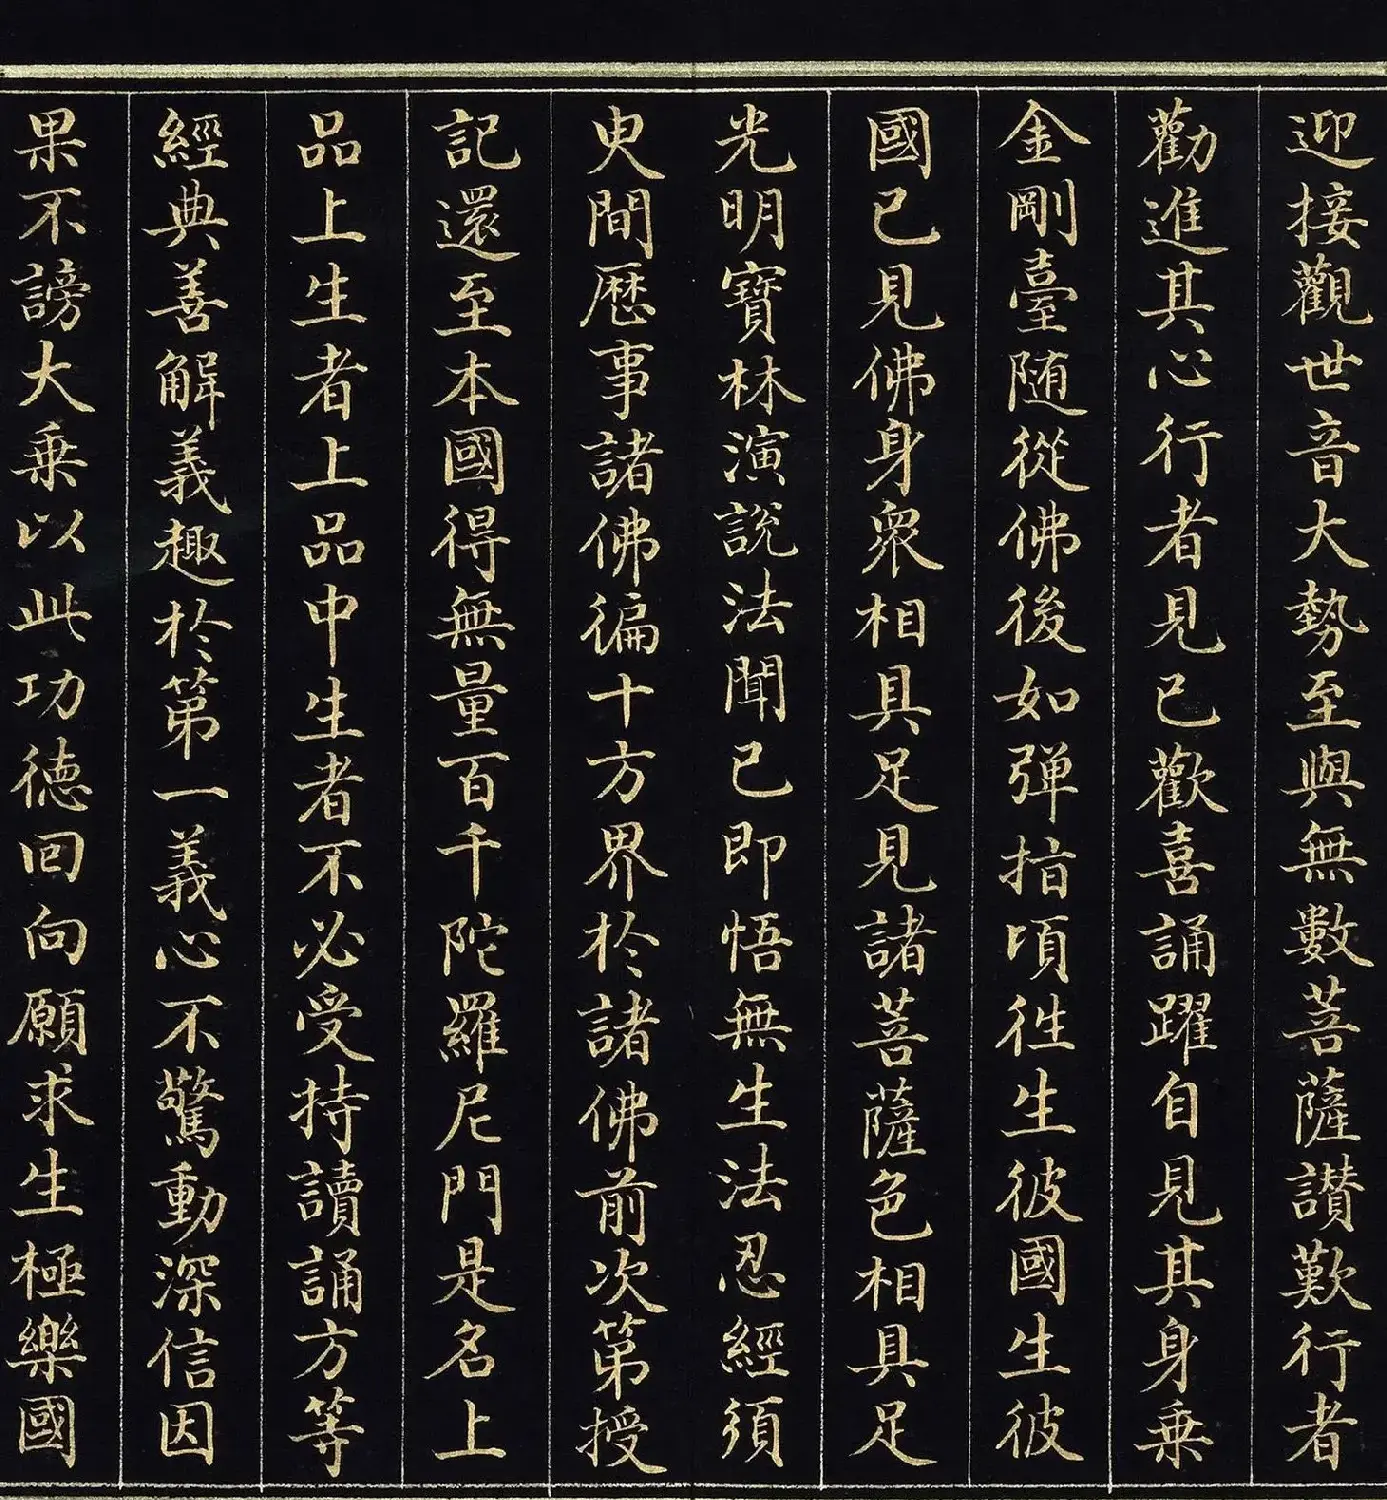 迎接觀世音大勢至與無數菩薩讃歎行者
勸進其心行者見已歡喜誦躍自見其身乗
金剛臺随從佛後如弾指頃徃生彼國生彼
國已見佛身衆相具足見諸菩薩色相具足
光明寳林演說法聞已即悟無生法忍經須
臾間歴事諸佛徧十方界於諸佛前次第授
記還至本國得無量百千陀羅尼門是名上
品上生者上品中生者不必受持讀誦方等
經典善解義趣於第一義心不驚動深信因
果不謗大乗以此功德回向願求生極樂國